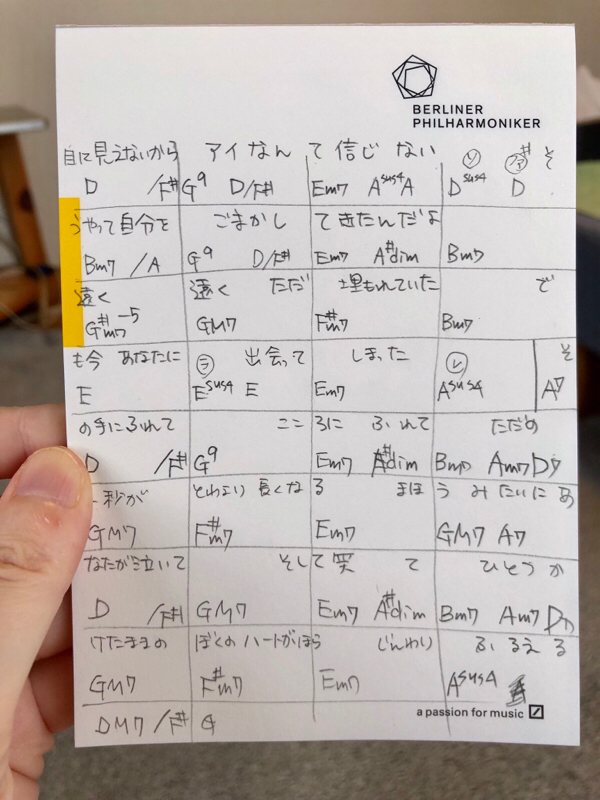 BERLINER
PHILHARMONIKER
目に見えないから アイなんて信じない そ
D /F# G9 D/F# Em7 Asus4 A ソ Dsus4 ファ# D
うやって自分を ごまかし てきたんだよ
Bm7 /A G9 D/F# Em7 A#dim Bm7
遠く 遠く ただ 埋もれていた で
G#m7-5 GM7 F#m7 Bm7
も今 あなたに 出会って しまった そ
E ラ Esus4 E Em7 レ Asus4 A7
の手にふれて ここ ろに ふれて ただの
D /F# G9 Em7 A#dim Bm7 Am7 D7
秒が とわより 長くな る まほ う みたいに あ
GM7 F#m7 Em7 GM7 A7
なたが泣いて そして笑 て ひとつ か
D /F# GM7 Em7 A#dim Bm7 Am7 D7
けたままの ぼくの ハートがほら じんわり ふ るえ る
GM7 F#m7 Em7 Asus4
DM7 /F# G
a passion for music